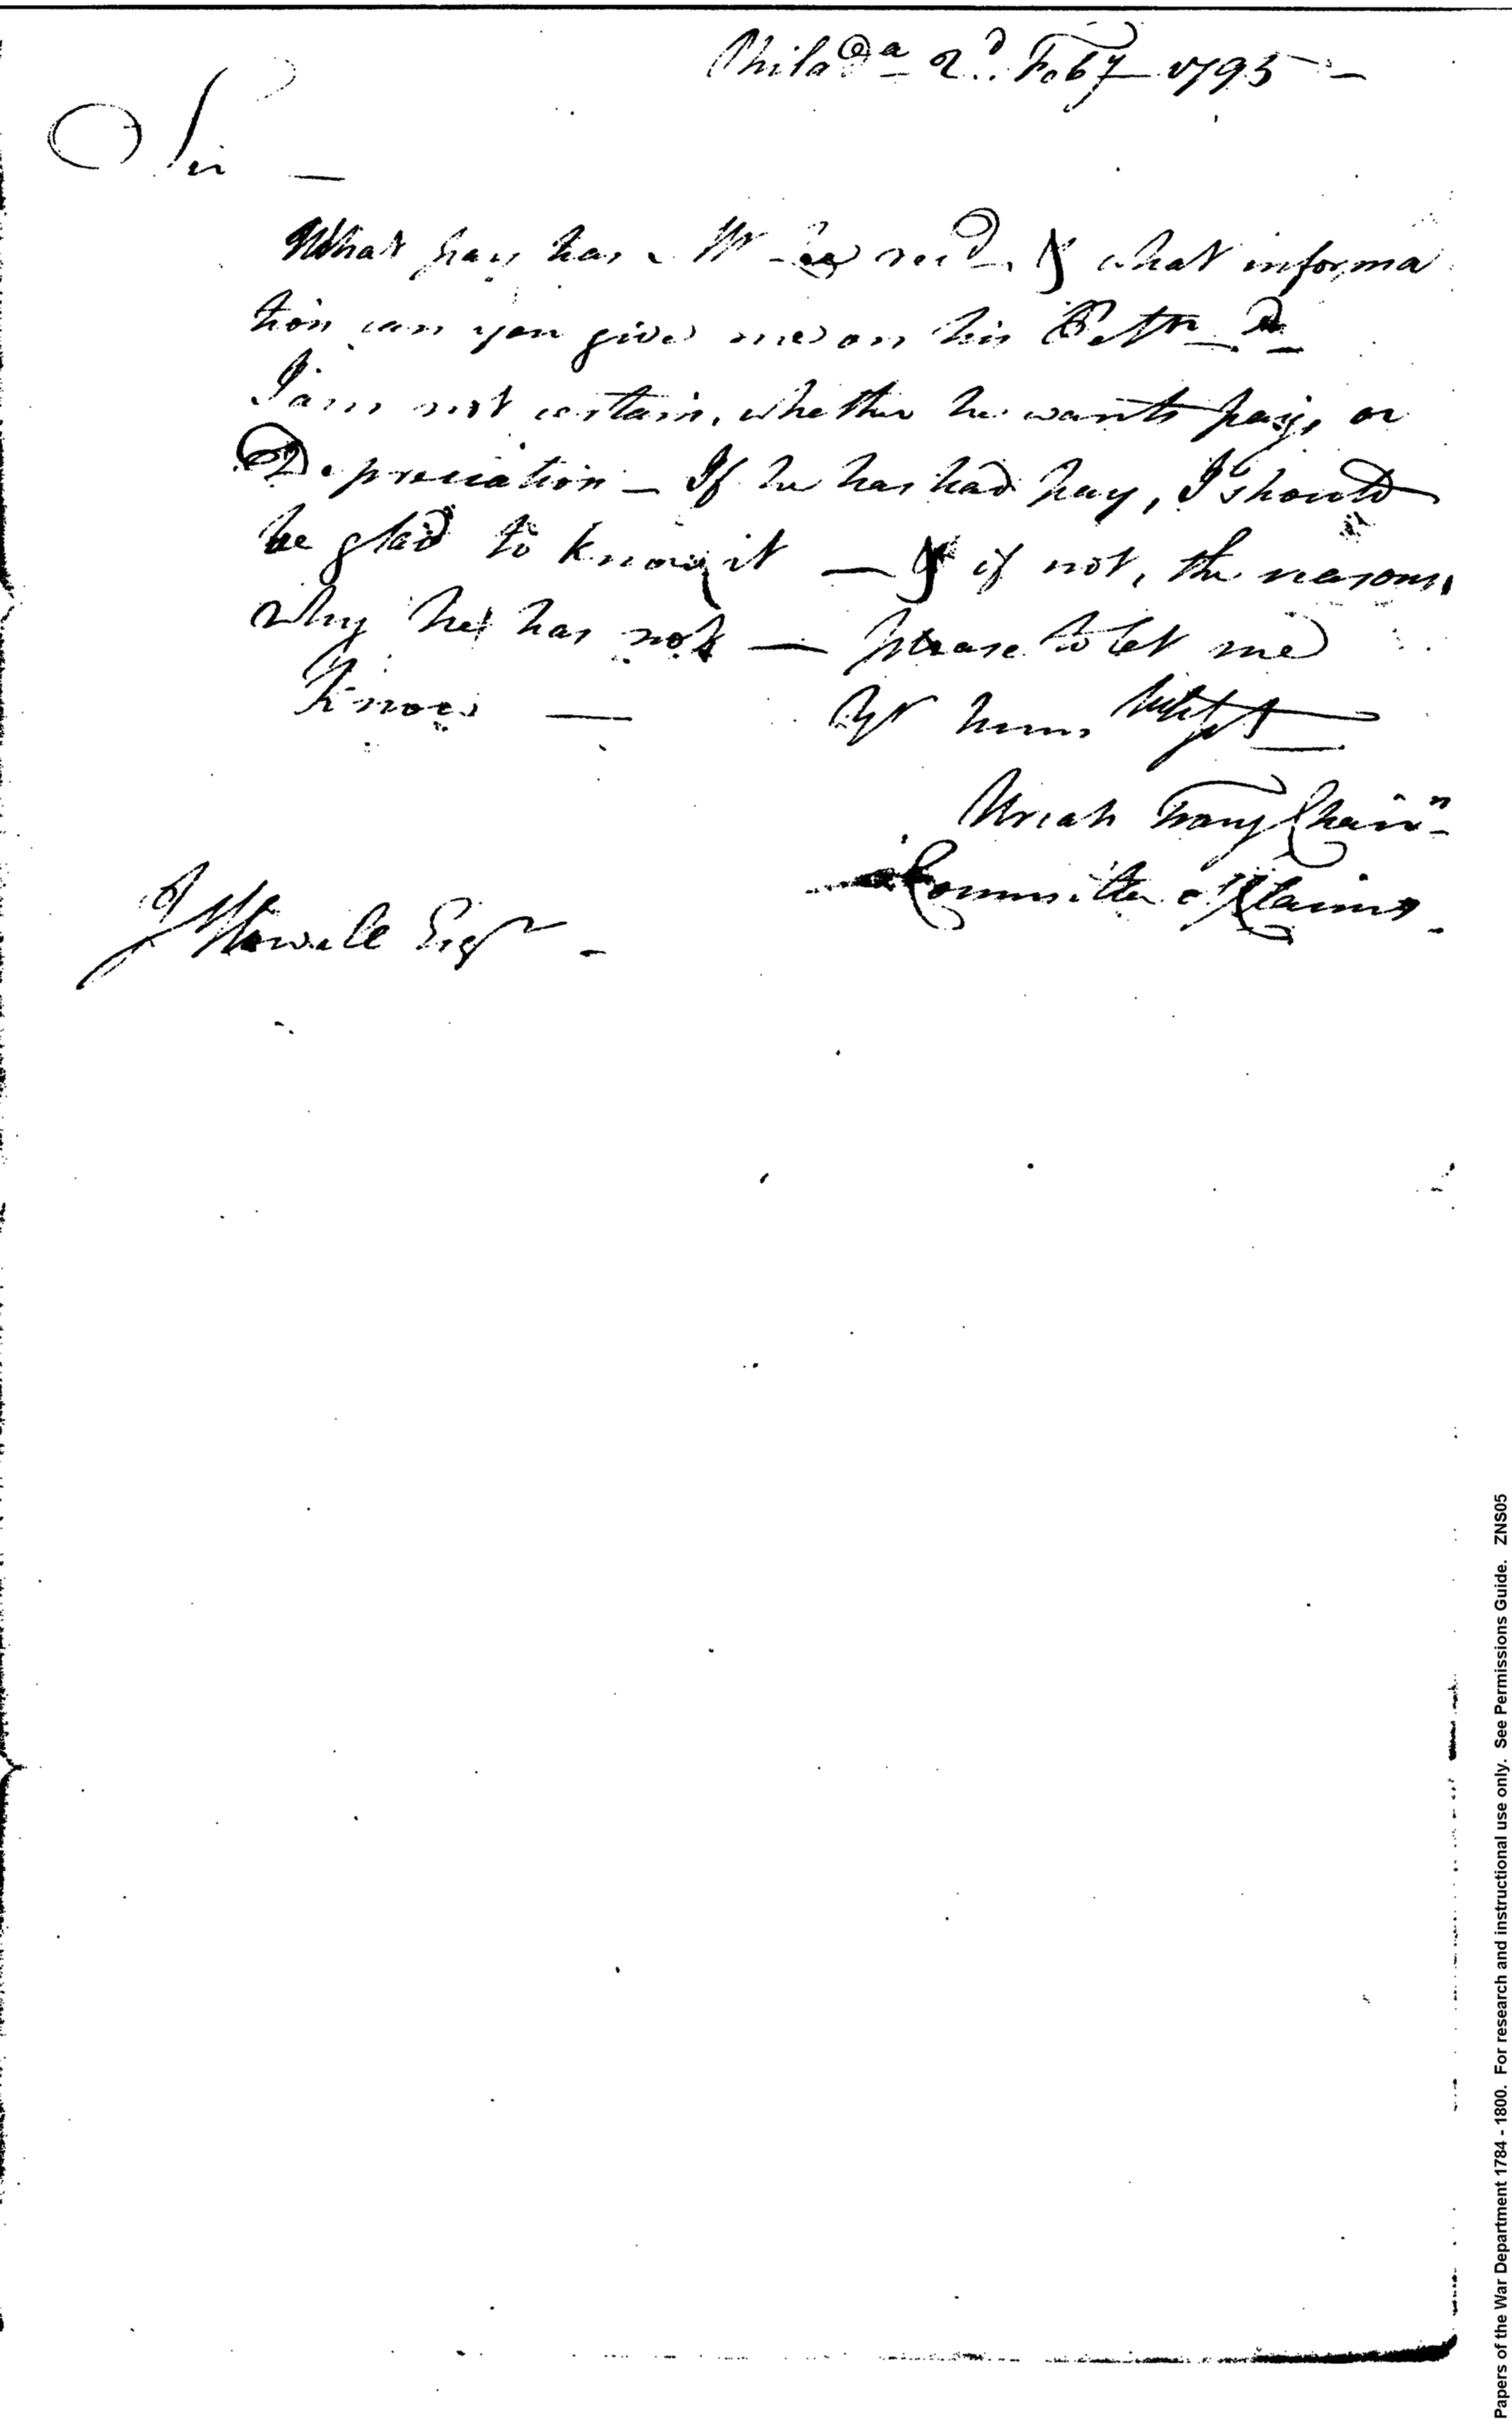 Philad.a 2d. Feby 1795 —
Sir —
What pay has Mr Lee recd. & what informa
tion can you give me on his Petn.
I am not certain, whether he wants pay, or
Depreciation — If he has had pay, I should
be glad to know it — & if not, the reasons,
why he has not — please to let me
Know — Yr hum,
Uriah Tracy Chairn
Committee of Claims.
J Howell Esqr —
Papers of the War Department 1784 - 1800. For research and instructional use only. See Permissions Guide. ZNS05